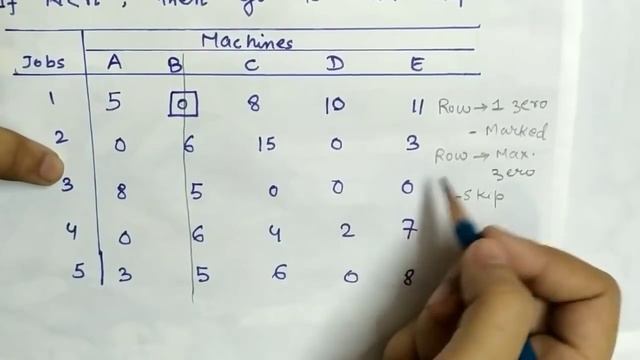 If N<n, then go to
Machines
Jobs A B C D E
1 5 0 8 10 11 Row → 1 zero
- Marked
2 0 6 15 0 3 Row → Max.
zero
3 8 5 0 0 0 - Skip
4 0 6 4 2 7
5 3 5 6 0 8